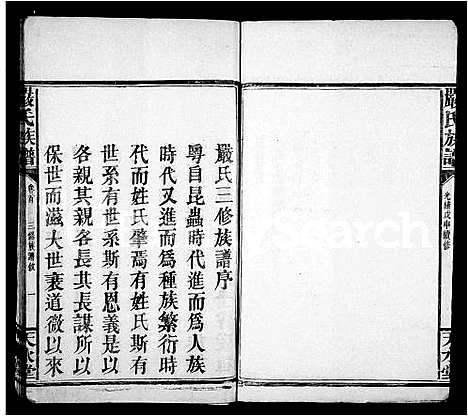 嚴氏族譜
光緒戊申續修
天水堂
嚴氏三修族譜序
粵自昆蟲時代進而為人族
時代又進而為種族繁衍時
代而姓氏肇焉有姓氏斯有
世系有世系斯有恩義是以
各親其親各長其長謀所以
保世而滋大世衰道微以來
嚴氏族譜
卷首
三修族譜敘
一
天水堂